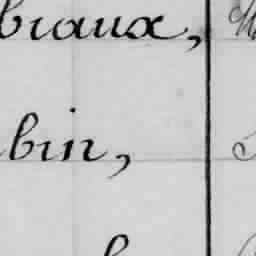 braux,
bin,